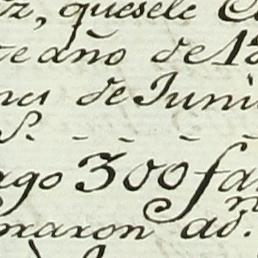 z, quesele C
e año de 18
nes de Juni
S. - - - -
ago 300 fan
maron ad.n